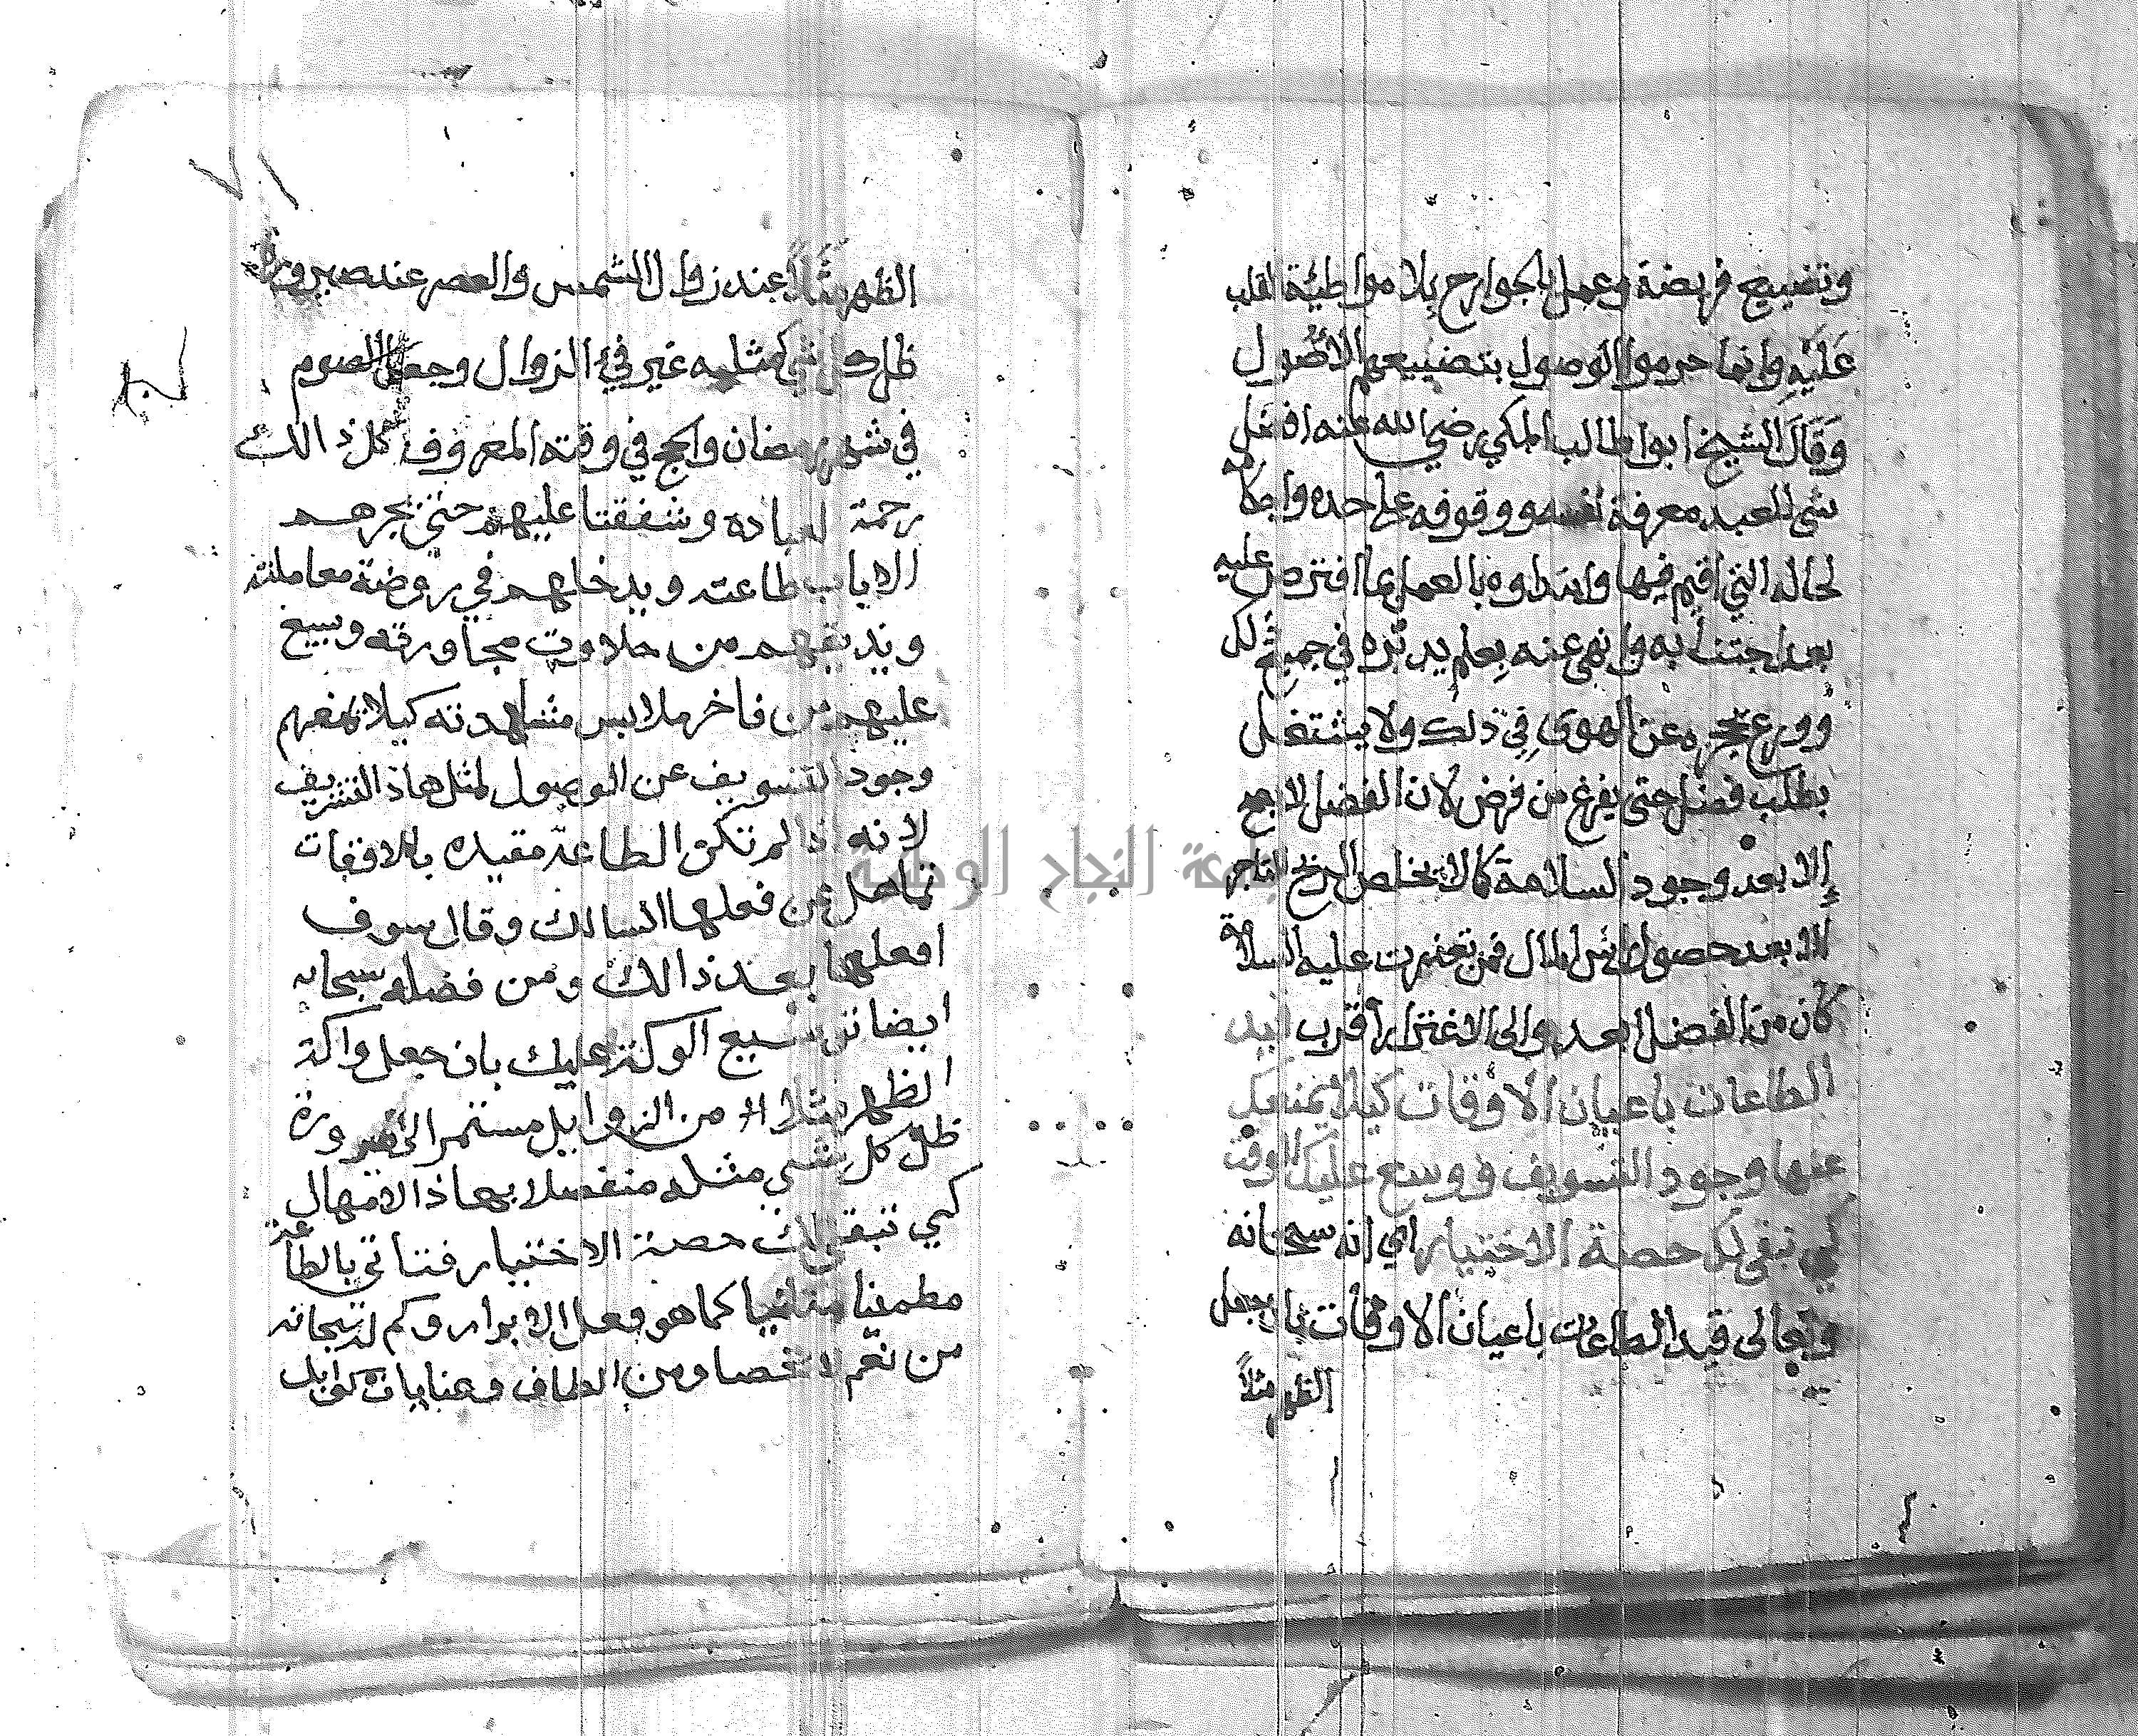 وتضييع فريضة وعمل بالجوارح بلا مواطئة القلب
عَلَيْهِ وانما حرموا الوصول بتضييعهم الاصُول
وَقَالَ الشيخ ابوا طالب المكي رضي الله عنه افضل
شي للعبد معرفة نفسه ووقوفه على حده واحكامه
لحاله التي اقيم فيها وابتداوه بالعمل بما افترض عليه
بعد اجتنابه وانهى عنه بِعلم يدبره في جميع ذلك
وورع يحجزه عن الهوى في ذلك ولا يشتغل
بطلب فضل حتى يفرغ من فرض لان الفضل لا
إلا بعد وجود السلامة كما لا يخلص الربح للتاجر
الا بعد حصول راس المال فمن تعذرت عليه السلامة
كان من الفضل ابعد والى الاغترار اقرب قيد
الطاعات باعيان الاوقات كيلا يمنعك
عنها وجود التسويف ووسع عليك الوقت
كي تبقى لك حصة الاختيار اي انه سبحانه
وتعالى قيد الطاعات باعيان الاوقات بان جعل
الظهر مثلاً
٧١
الظهر مثلاً عند زوال الشمس والعصر عند صيرورة
ظل كل شي كمثليه غير فيئ الزوال وجعل الصوم
في شهر رمضان والحج في وقته المعروف كل ذالك
رحمة لعباده وشفقتا عليهم حتى يجرهم
الا باب طاعته ويدخلهم في روضة معاملته
ويذيقهم من حلاوت مجاورته ويسبغ
عليهم من فاخر ملابس مشاهدته كيلا يمنعهم
وجود التسويف عن الوصول لمثل هاذا التشريف
لانه اذا لم تكن الطاعة مقيده بالاوقات
تماهل عن فعلها السالك وقال سوف
افعلها بعد ذالك ومن فضله سبحانه
ايضا توسيع الوكت عليك بان جعل واكت
الظهر مثلا من الزوايل مستمرا الى صيرورة
ظل كل شي مثله منفصلا بهاذا الامهال
كي تبقى لك حصة الاختيار فتاتي بالطاعة
مطمئنا متانيا كما هو فعل الابرار وكم له سبحانه
من نعم لا تحصا ومن الطاف وعنايات